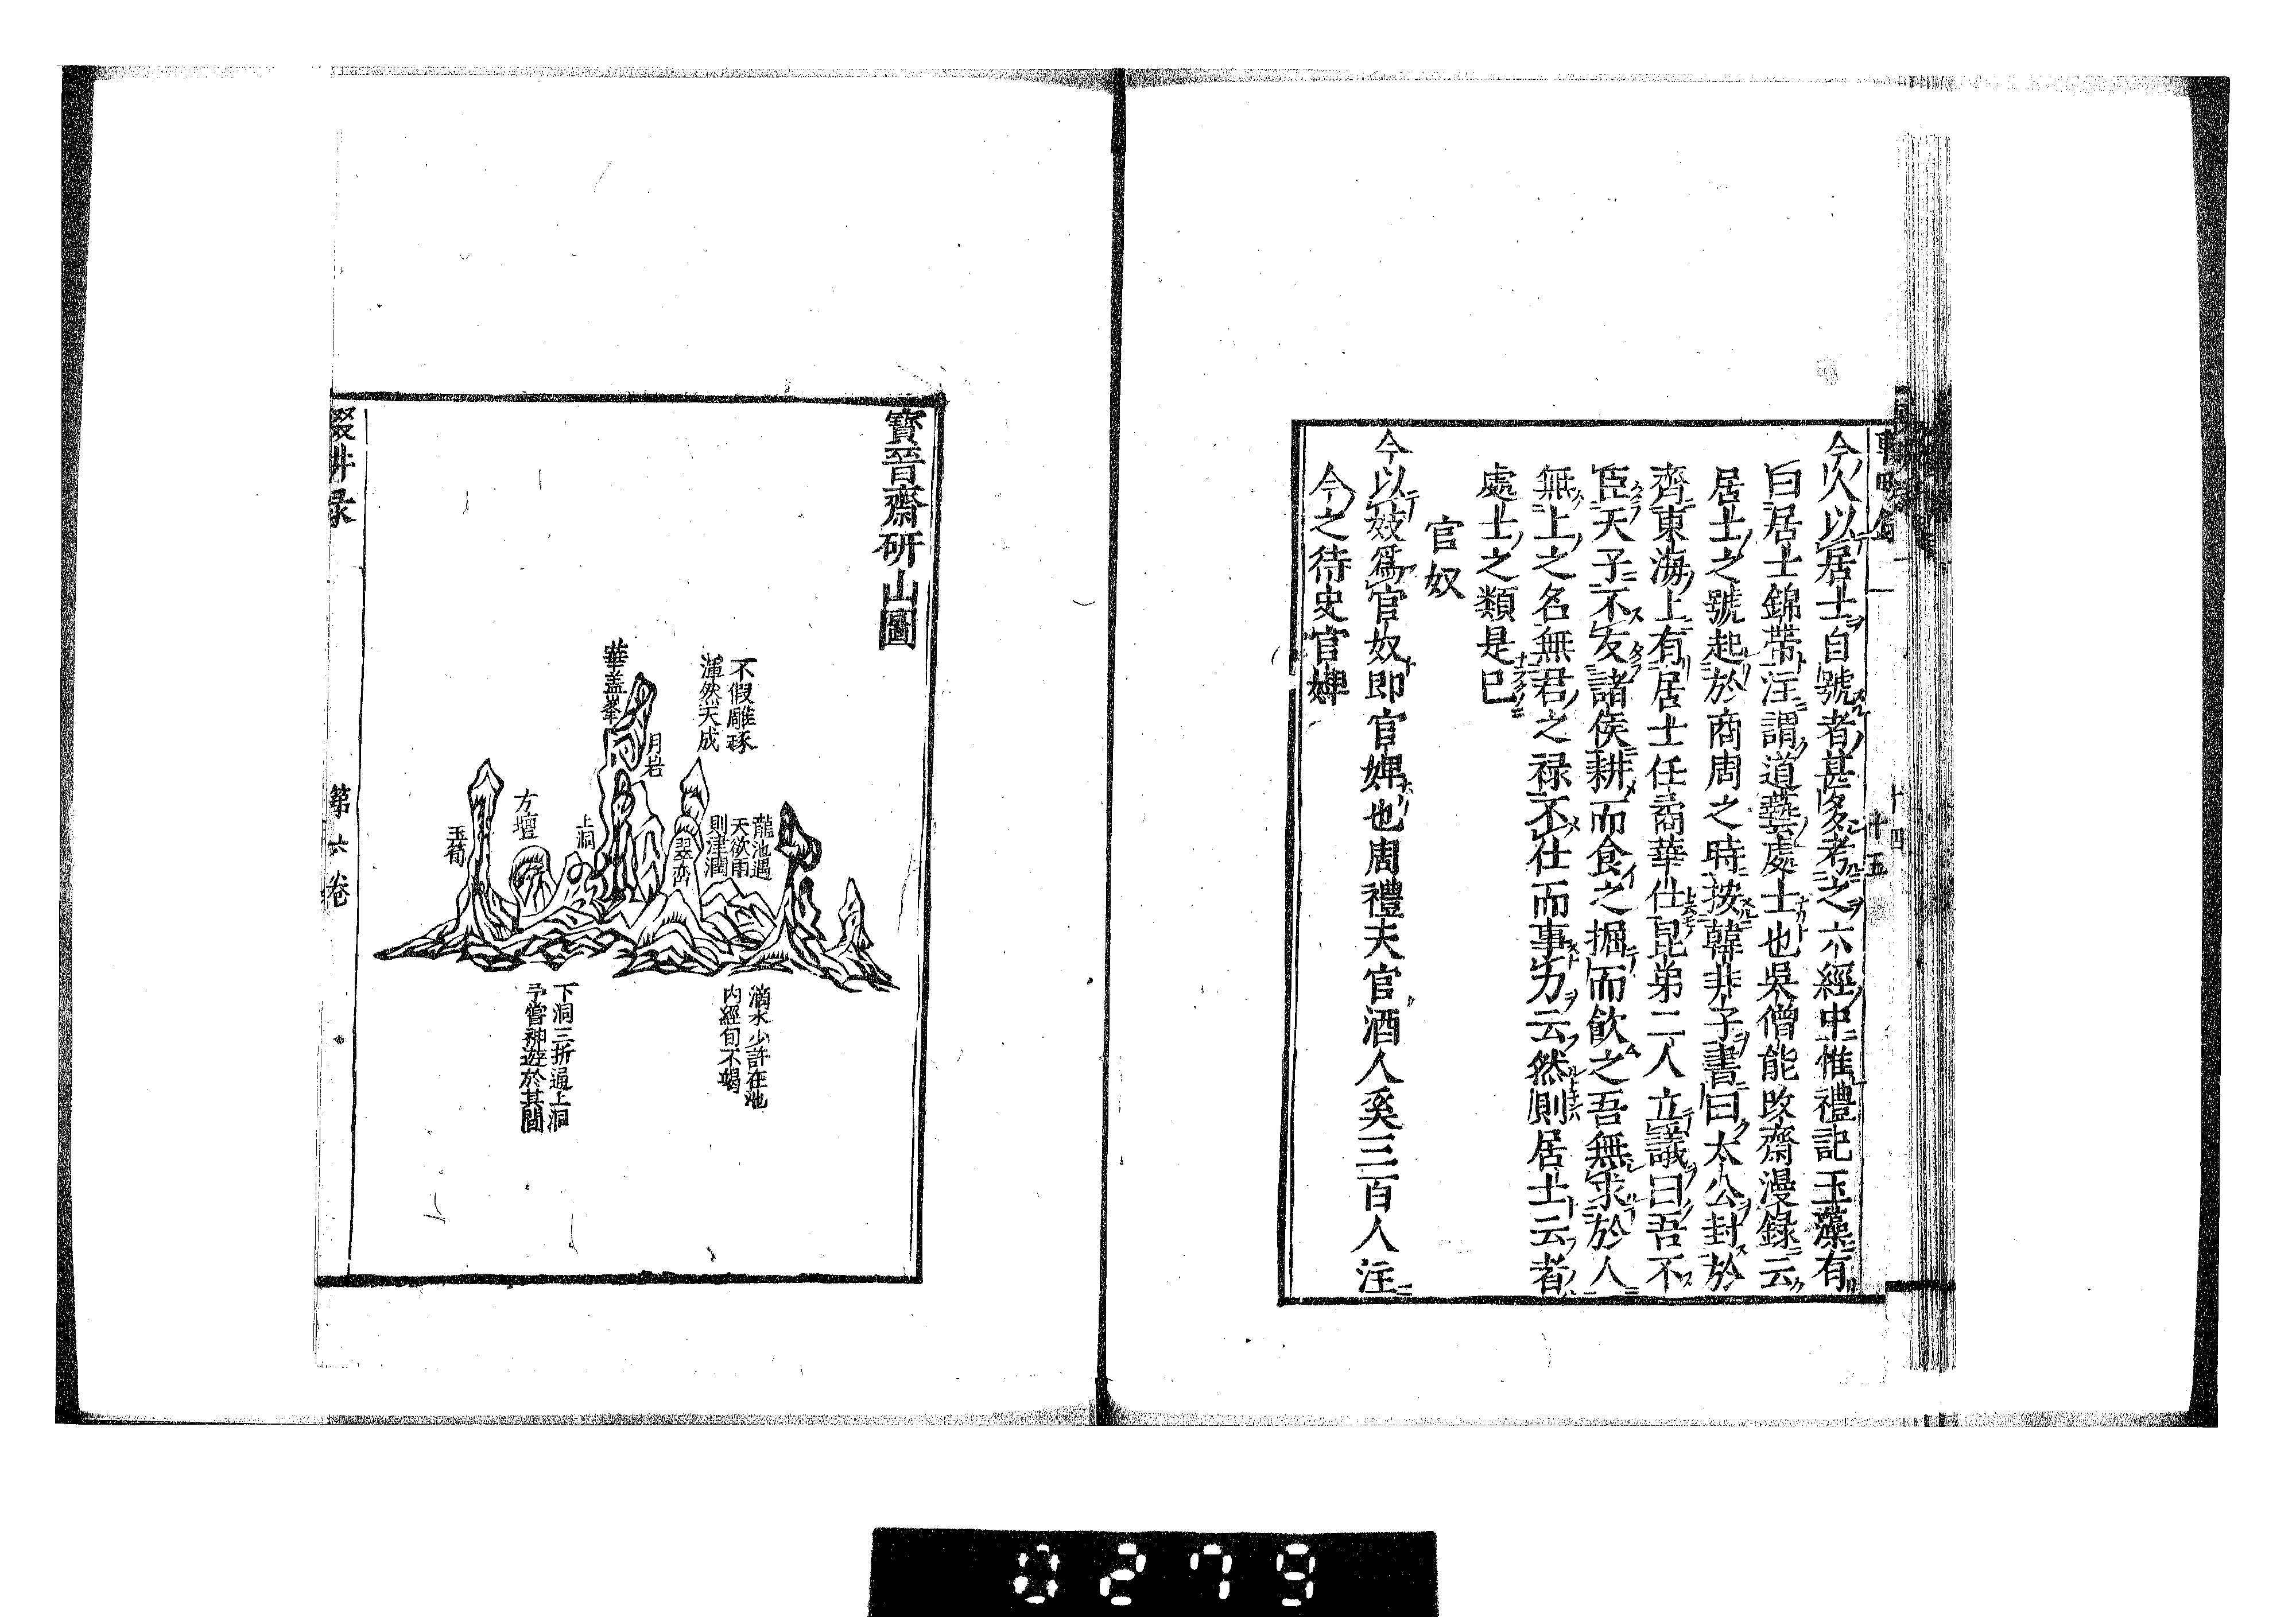 今人以居士自號者甚多考之六經中惟禮記玉藻有
曰居士錦帶注謂道藝處士也吳僧能改齋漫錄云
居士之號起於商周之時按韓非子書曰太公封於
齊東海上有居士任矞華仕昆弟二人立議曰吾不
臣天子不友諸侯耕而食之掘而飲之吾無求於人
無上之名無君之禄不仕而事力云然則居士云者
處士之類是已
官奴
今以妓爲官奴即官婢也周禮天官酒人奚三百人注
今之侍史官婢
十四
十五
寶晉齋研山圖
不假雕琢
渾然天成
華盖峯
月岩
龍池遇
天欲雨
則津潤
翠巒
上洞
方壇
玉筍
滴水少許在池
内經旬不竭
下洞三折通上洞
予嘗神遊於其間
輟耕录
第六卷
0279